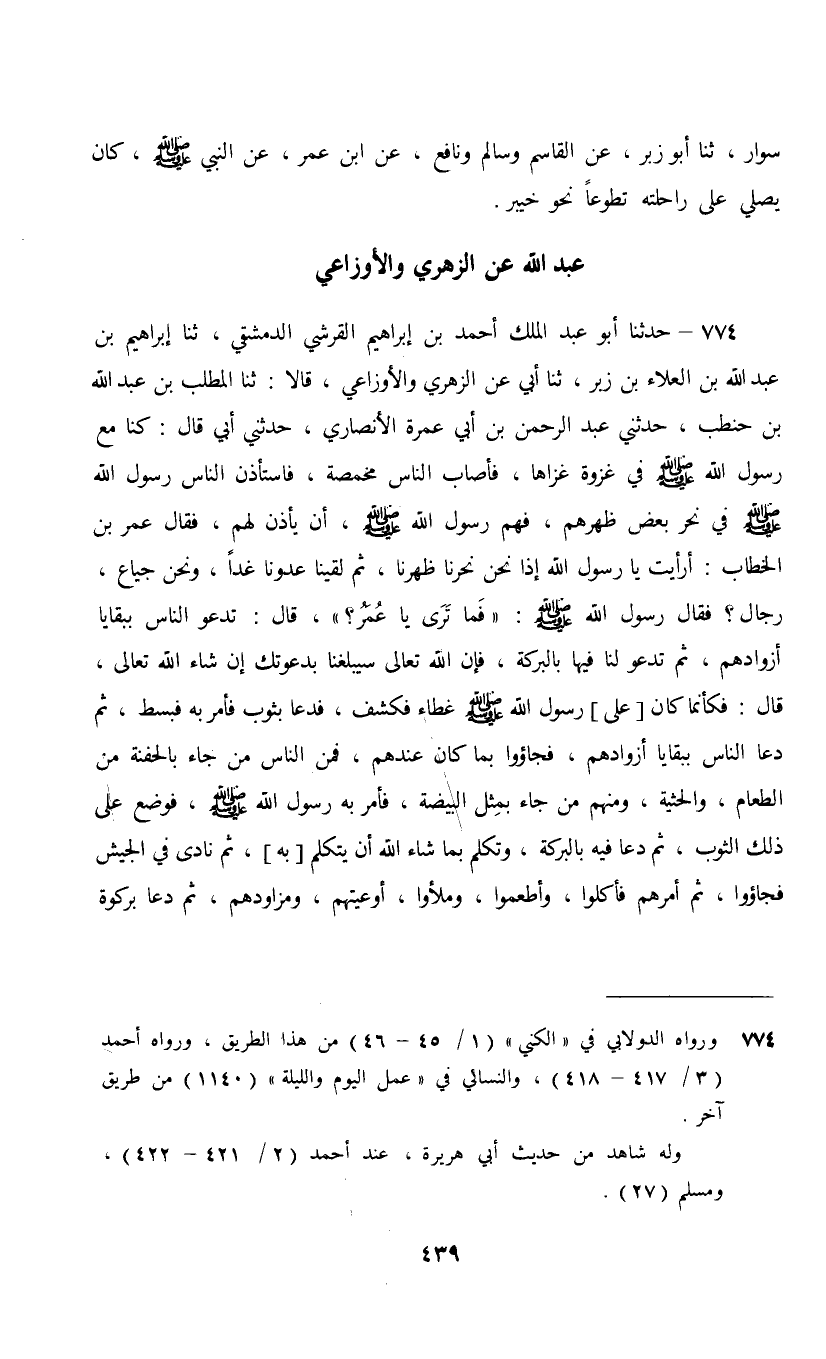 سوار ، ثنا أبو زبر ، عن القاسم وسالم ونافع ، عن ابن عمر ، عن النبي ﷺ ، كان
يصلي على راحلته تطوعاً نحو خيبر .
عبد الله عن الزهري والأوزاعي
٧٧٤ – حدثنا أبو عبد الملك أحمد بن إبراهيم القرشي الدمشقي ، ثنا إبراهيم بن
عبد الله بن العلاء بن زبر ، ثنا أبي عن الزهري والأوزاعي ، قالا : ثنا المطلب بن عبد الله
بن حنطب ، حدثني عبد الرحمن بن أبي عمرة الأنصاري ، حدثني أبي قال : كنا مع
رسول الله ﷺ في غزوة غزاها ، فأصاب الناس مخمصة ، فاستأذن الناس رسول الله
ﷺ في نحر بعض ظهرهم ، فهم رسول الله ﷺ ، أن يأذن لهم ، فقال عمر بن
الخطاب : أرأيت يا رسول الله إذا نحن نحرنا ظهرنا ، ثم لقينا عدونا غداً ، ونحن جياع ،
رجال ؟ فقال رسول الله ﷺ : « فَما تَرَى يا عُمَرُ ؟ » ، قال : تدعو الناس ببقايا
أزوادهم ، ثم تدعو لنا فيها بالبركة ، فإن الله تعالى سيبلغنا بدعوتك إن شاء الله تعالى ،
قال : فكأنما كان [ على ] رسول الله ﷺ غطاء فكشف ، فدعا بثوب فأمر به فبسط ، ثم
دعا الناس ببقايا أزوادهم ، فجاؤوا بما كان عندهم ، فمن الناس من جاء بالحفنة من
الطعام ، والحثية ، ومنهم من جاء بمِثل البيضة ، فأمر به رسول الله ﷺ ، فوضع على
ذلك الثوب ، ثم دعا فيه بالبركة ، وتكلم بما شاء الله أن يتكلم [ به ] ، ثم نادى في الجيش
فجاؤوا ، ثم أمرهم فأكلوا ، وأطعموا ، وملأوا ، أوعيتهم ، ومزاودهم ، ثم دعا بركوة
٧٧٤ ورواه الدولابي في « الكني » ( ١ / ٤٥ – ٤٦ ) من هذا الطريق ، ورواه أحمد
( ٣ / ٤١٧ – ٤١٨ ) ، والنسائي في « عمل اليوم والليلة » ( ١١٤٠ ) من طريق
آخر .
وله شاهد من حديث أبي هريرة ، عند أحمد ( ٢ / ٤٢١ – ٤٢٢ ) ،
ومسلم ( ٢٧ ) .
٤٣٩